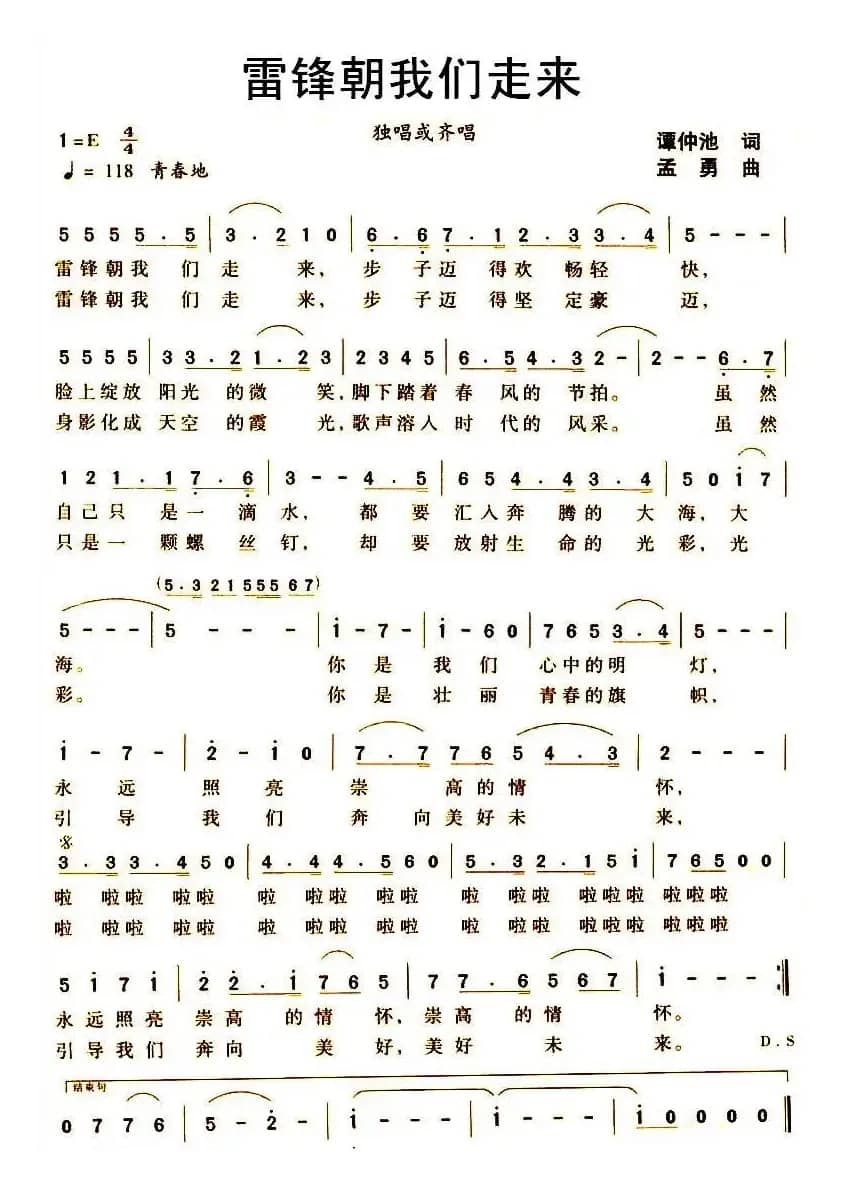 雷锋朝我们走来
独唱或齐唱
1=E 4/4
谭仲池 词
♩= 118 青春地
孟勇 曲
5 5 5 5 5 . 5 | 3 . 2 1 0 | 6 . 6 7 . 1 2 . 3 3 3 . 4 | 5 - - - |
雷锋朝我 们 走 来, 步 子迈 得欢 畅轻 快,
雷锋朝我 们 走 来, 步 子迈 得坚 定豪 迈,
5 5 5 5 | 3 3 . 2 1 . 2 3 | 2 3 4 5 | 6 . 5 4 . 3 2 - | 2 - - 6 . 7 |
脸上绽放 阳光 的微 笑,脚下踏着 春 风的 节拍。 虽然
身影化成 天空 的霞 光,歌声溶人 时 代的 风采。 虽然
1 2 1 . 1 7 . 6 | 3 - - 4 . 5 | 6 5 4 . 4 3 . 4 | 5 0 i 7 |
自己只 是一 滴水, 都 要 汇入奔 腾的 大 海,大
只是一 颗螺 丝钉, 却 要 放射生 命的 光 彩,光
(5 . 3 2 1 5 5 5 6 7)
5 - - - | 5 - - - | i - 7 - | i - 6 0 | 7 6 5 3 . 4 | 5 - - - |
海。 你 是 我 们 心中的明 灯,
彩。 你 是 壮 丽 青春的旗 帜,
i - 7 - | 2 - i 0 | 7 . 7 7 6 5 4 . 3 | 2 - - - |
永 远 照 亮 崇 高的情 怀,
引 导 我 们 奔 向美好未 来,
3 . 3 3 . 4 5 0 | 4 . 4 4 . 5 6 0 | 5 . 3 2 . 1 5 i | 7 6 5 0 0 |
啦 啦啦 啦啦 啦 啦啦 啦啦 啦 啦啦 啦啦啦 啦啦啦
啦 啦啦 啦啦 啦 啦啦 啦啦 啦 啦啦 啦啦啦 啦啦啦
5 i 7 i | 2 2 . i 7 6 5 | 7 7 . 6 5 6 7 | i - - :||
永远照亮 崇高 的情 怀,崇高 的情 怀。
引导我们 奔向 美 好,美好 未 来。 D.S
结束句
0 7 7 6 | 5 - 2 - | 5 - - - | i - - - | i - - - | i 0 0 0 0 ||